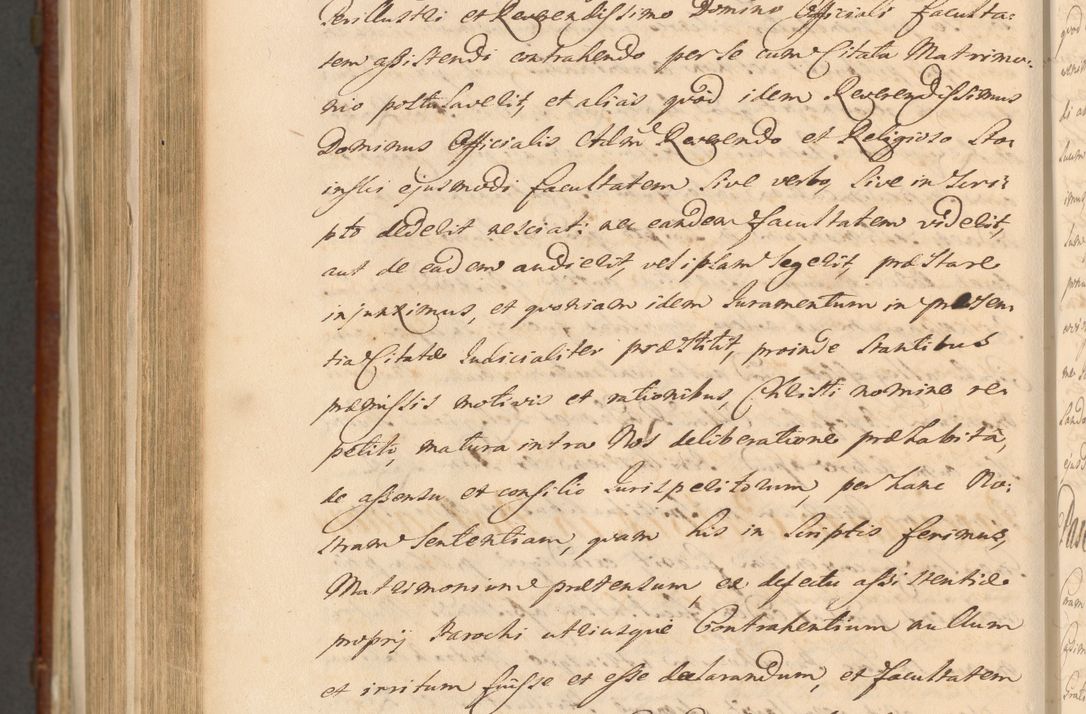 Perillustri et Reverendissimo Domino Officiali faculta=
tem assistendi contrahendo per se cum Citata Matrimo=
nio postulaverit, et alias quod idem Reverendissimus
Dominus Officialis Adm Reverendo et Religioso Sta=
inslii ejusmodi facultatem sive verbo, sive in Scri=
pto dederit nesciat: nec eandem facultatem viderit,
aut de eadem audierit, vel ipsam legerit, præstare
injunximus, et quoniam idem Juramentum in præsen
tia Citatæ Judicialiter præstitit, proinde stantibus
præmissis motivis et rationibus, Christi nomine re=
petito, matura intra Nos deliberatione præhabita,
de assensu et consilio Jurisperitorum, per hanc No=
stram Sententiam, quam his in Scriptis ferimus,
Matrimonium prætensum, ex defectu assistentiæ
proprij Parochi utriusque Contrahentium nullum
et irritum fuisse et esse declarandum, et facultatem